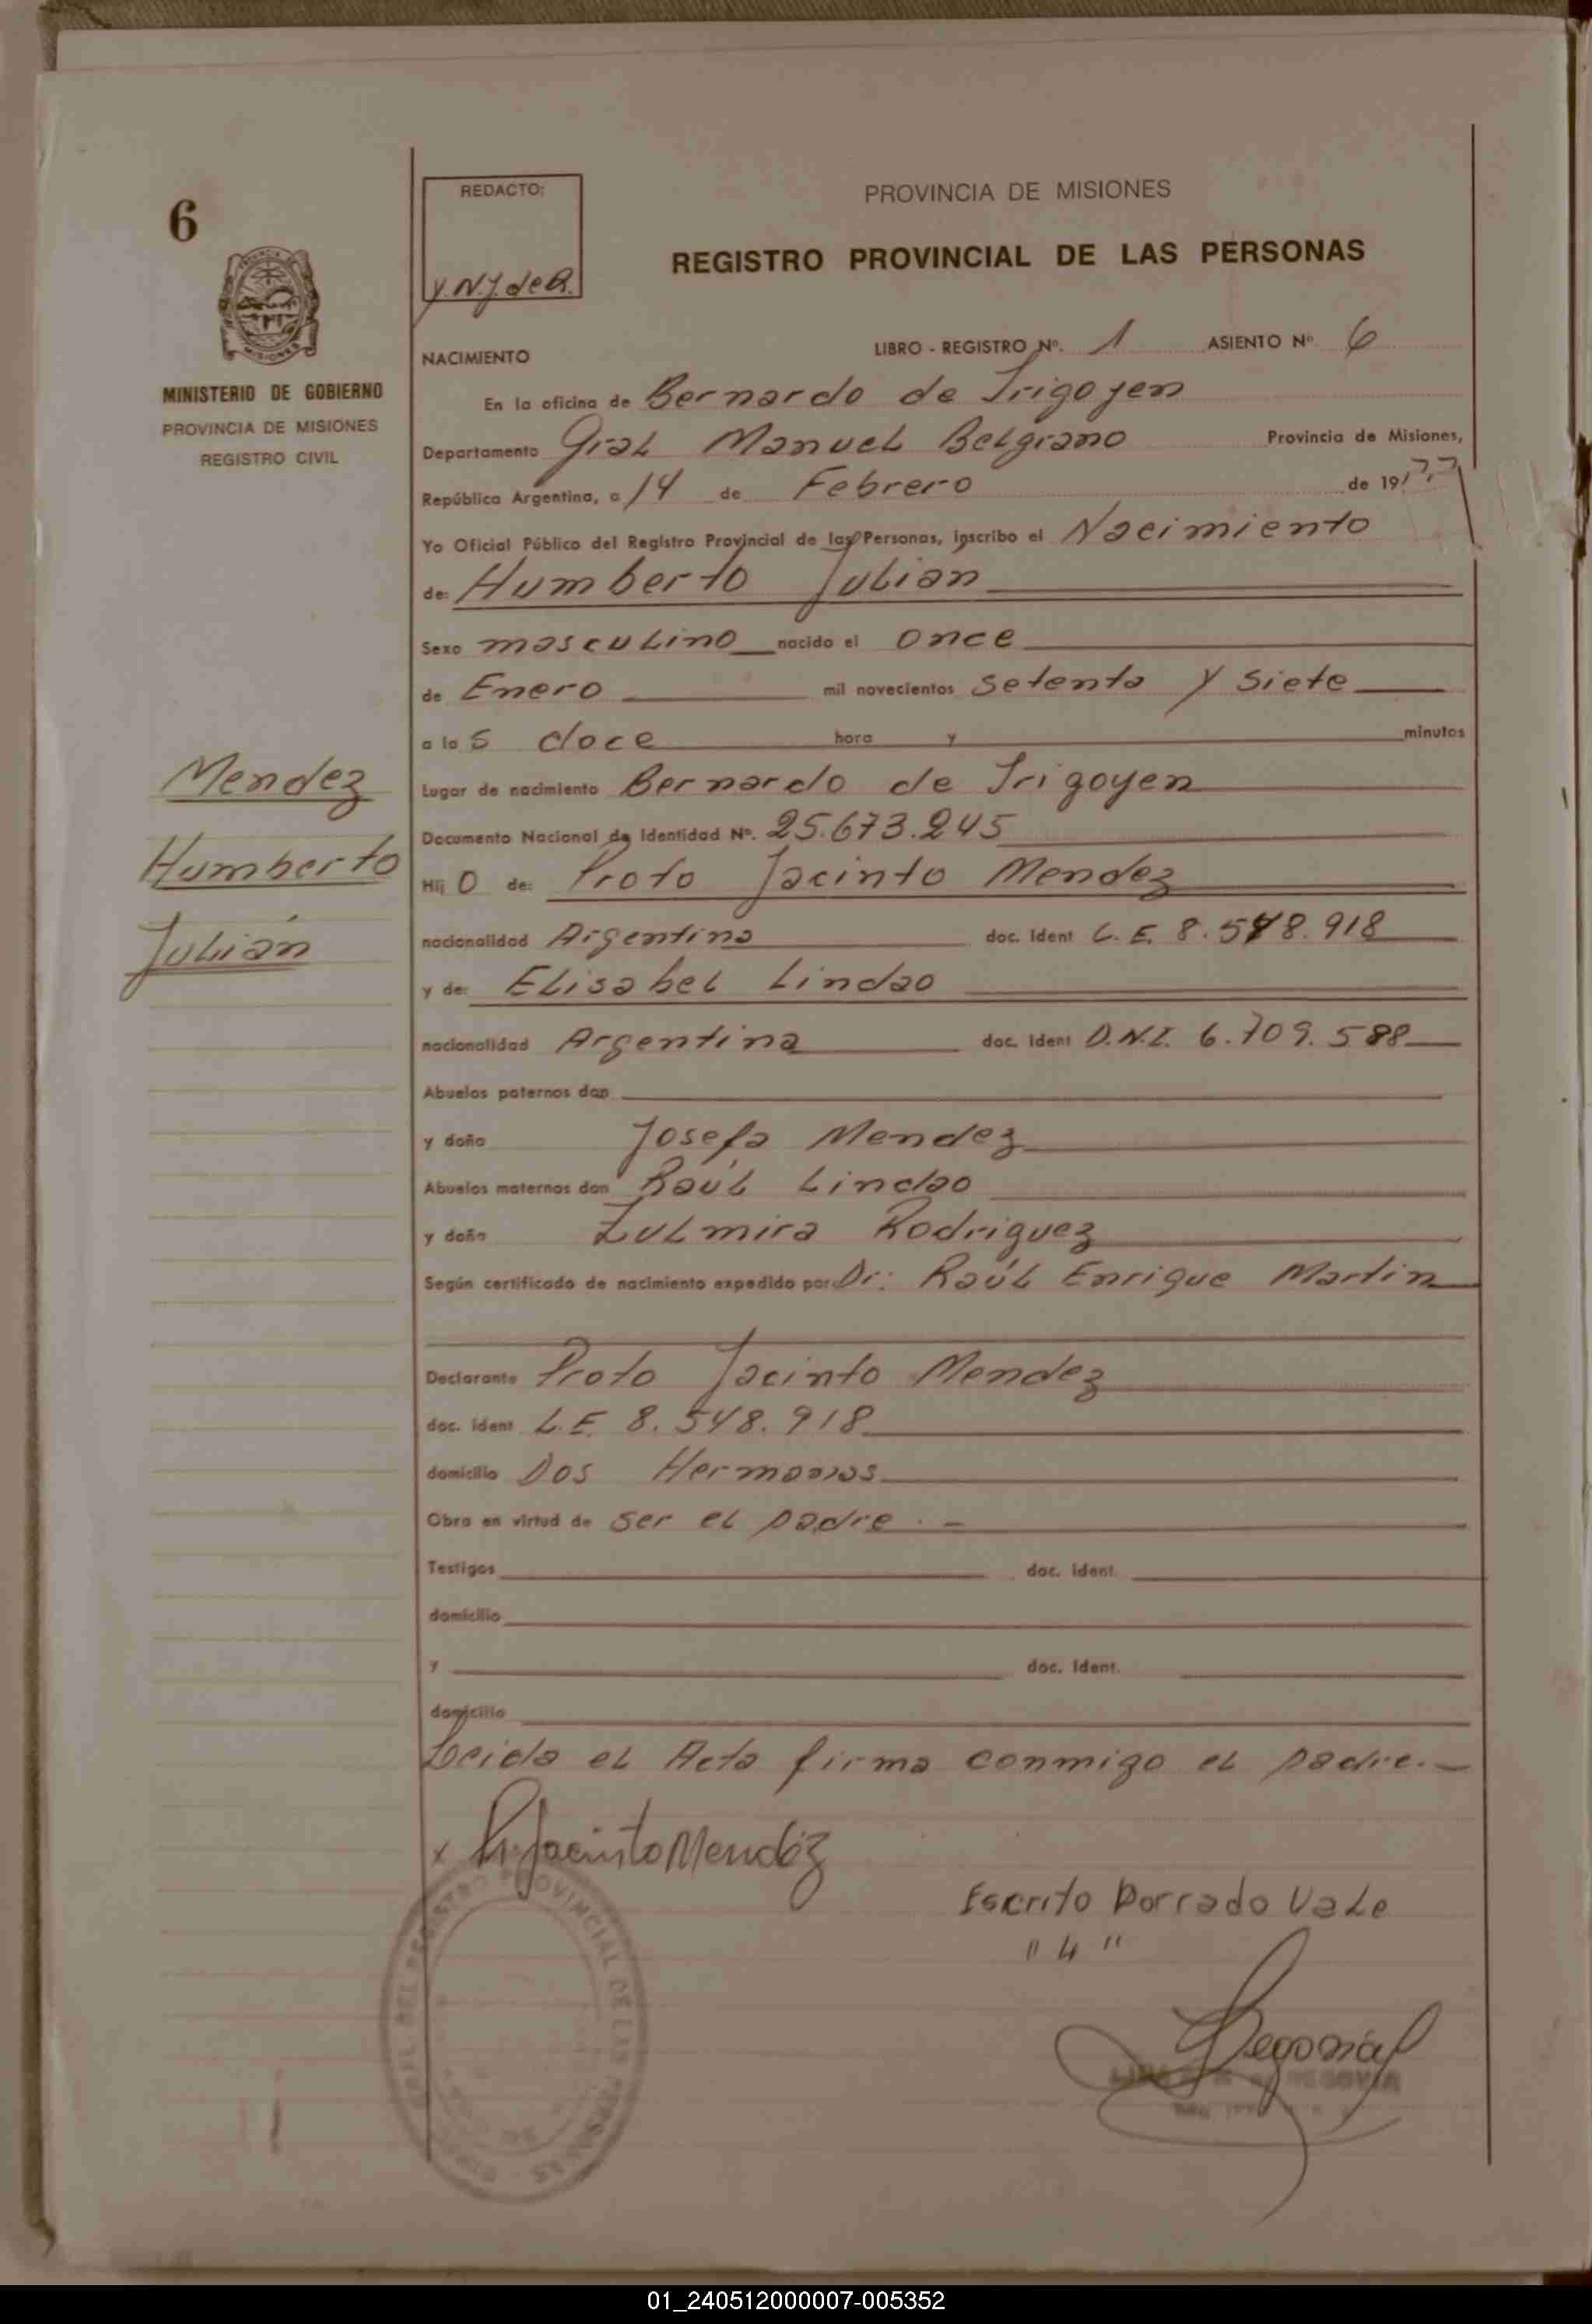 6
MINISTERIO DE GOBIERNO
PROVINCIA DE MISIONES
REGISTRO CIVIL
Mendez
Humberto
Julián
REDACTO:
Y.N.J. de R.
PROVINCIA DE MISIONES
REGISTRO PROVINCIAL DE LAS PERSONAS
NACIMIENTO LIBRO - REGISTRO Nº. 1 ASIENTO Nº 6
En la oficina de Bernardo de Irigoyen
Departamento Gral Manuel Belgrano Provincia de Misiones,
República Argentina, a 14 de Febrero de 1977
Yo Oficial Público del Registro Provincial de las Personas, inscribo el Nacimiento
de: Humberto Julian
Sexo masculino nacido el once
de Enero mil novecientos setenta y siete
a las doce hora y minutos
Lugar de nacimiento Bernardo de Irigoyen
Documento Nacional de Identidad Nº. 25.673.245
Hijo de: Proto Jacinto Mendez
nacionalidad Argentina doc. Ident L.E. 8.548.918
y de: Elisabel Lindao
nacionalidad Argentina doc. Ident D.N.I. 6.709.588
Abuelos paternos don
y doña Josefa Mendez
Abuelos maternos don Raúl Lindao
y doña Zulmira Rodriguez
Según certificado de nacimiento expedido por: Dr: Raúl Enrique Martin
Declarante Proto Jacinto Mendez
doc. ident L.E. 8.548.918
domicilio Dos Hermanas
Obra en virtud de ser el padre.-
Testigos doc. ident.
domicilio
y doc. Ident.
domicilio
Leida el Acta firma conmigo el padre.-
x P. Jacinto Mendéz
Escrito borrado Vale
"4"
REGISTRO PROVINCIAL DE LAS PERSONAS
01_240512000007-005352